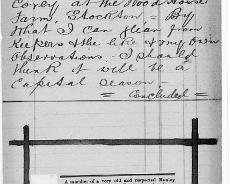 Covey at the Wood House
Farm, Stockton = By
what I can glean from
Keepers & the like & my own
Observations. I should
think it will be a
Capital Season
= Concluded =
A member of a very old and respected Manley